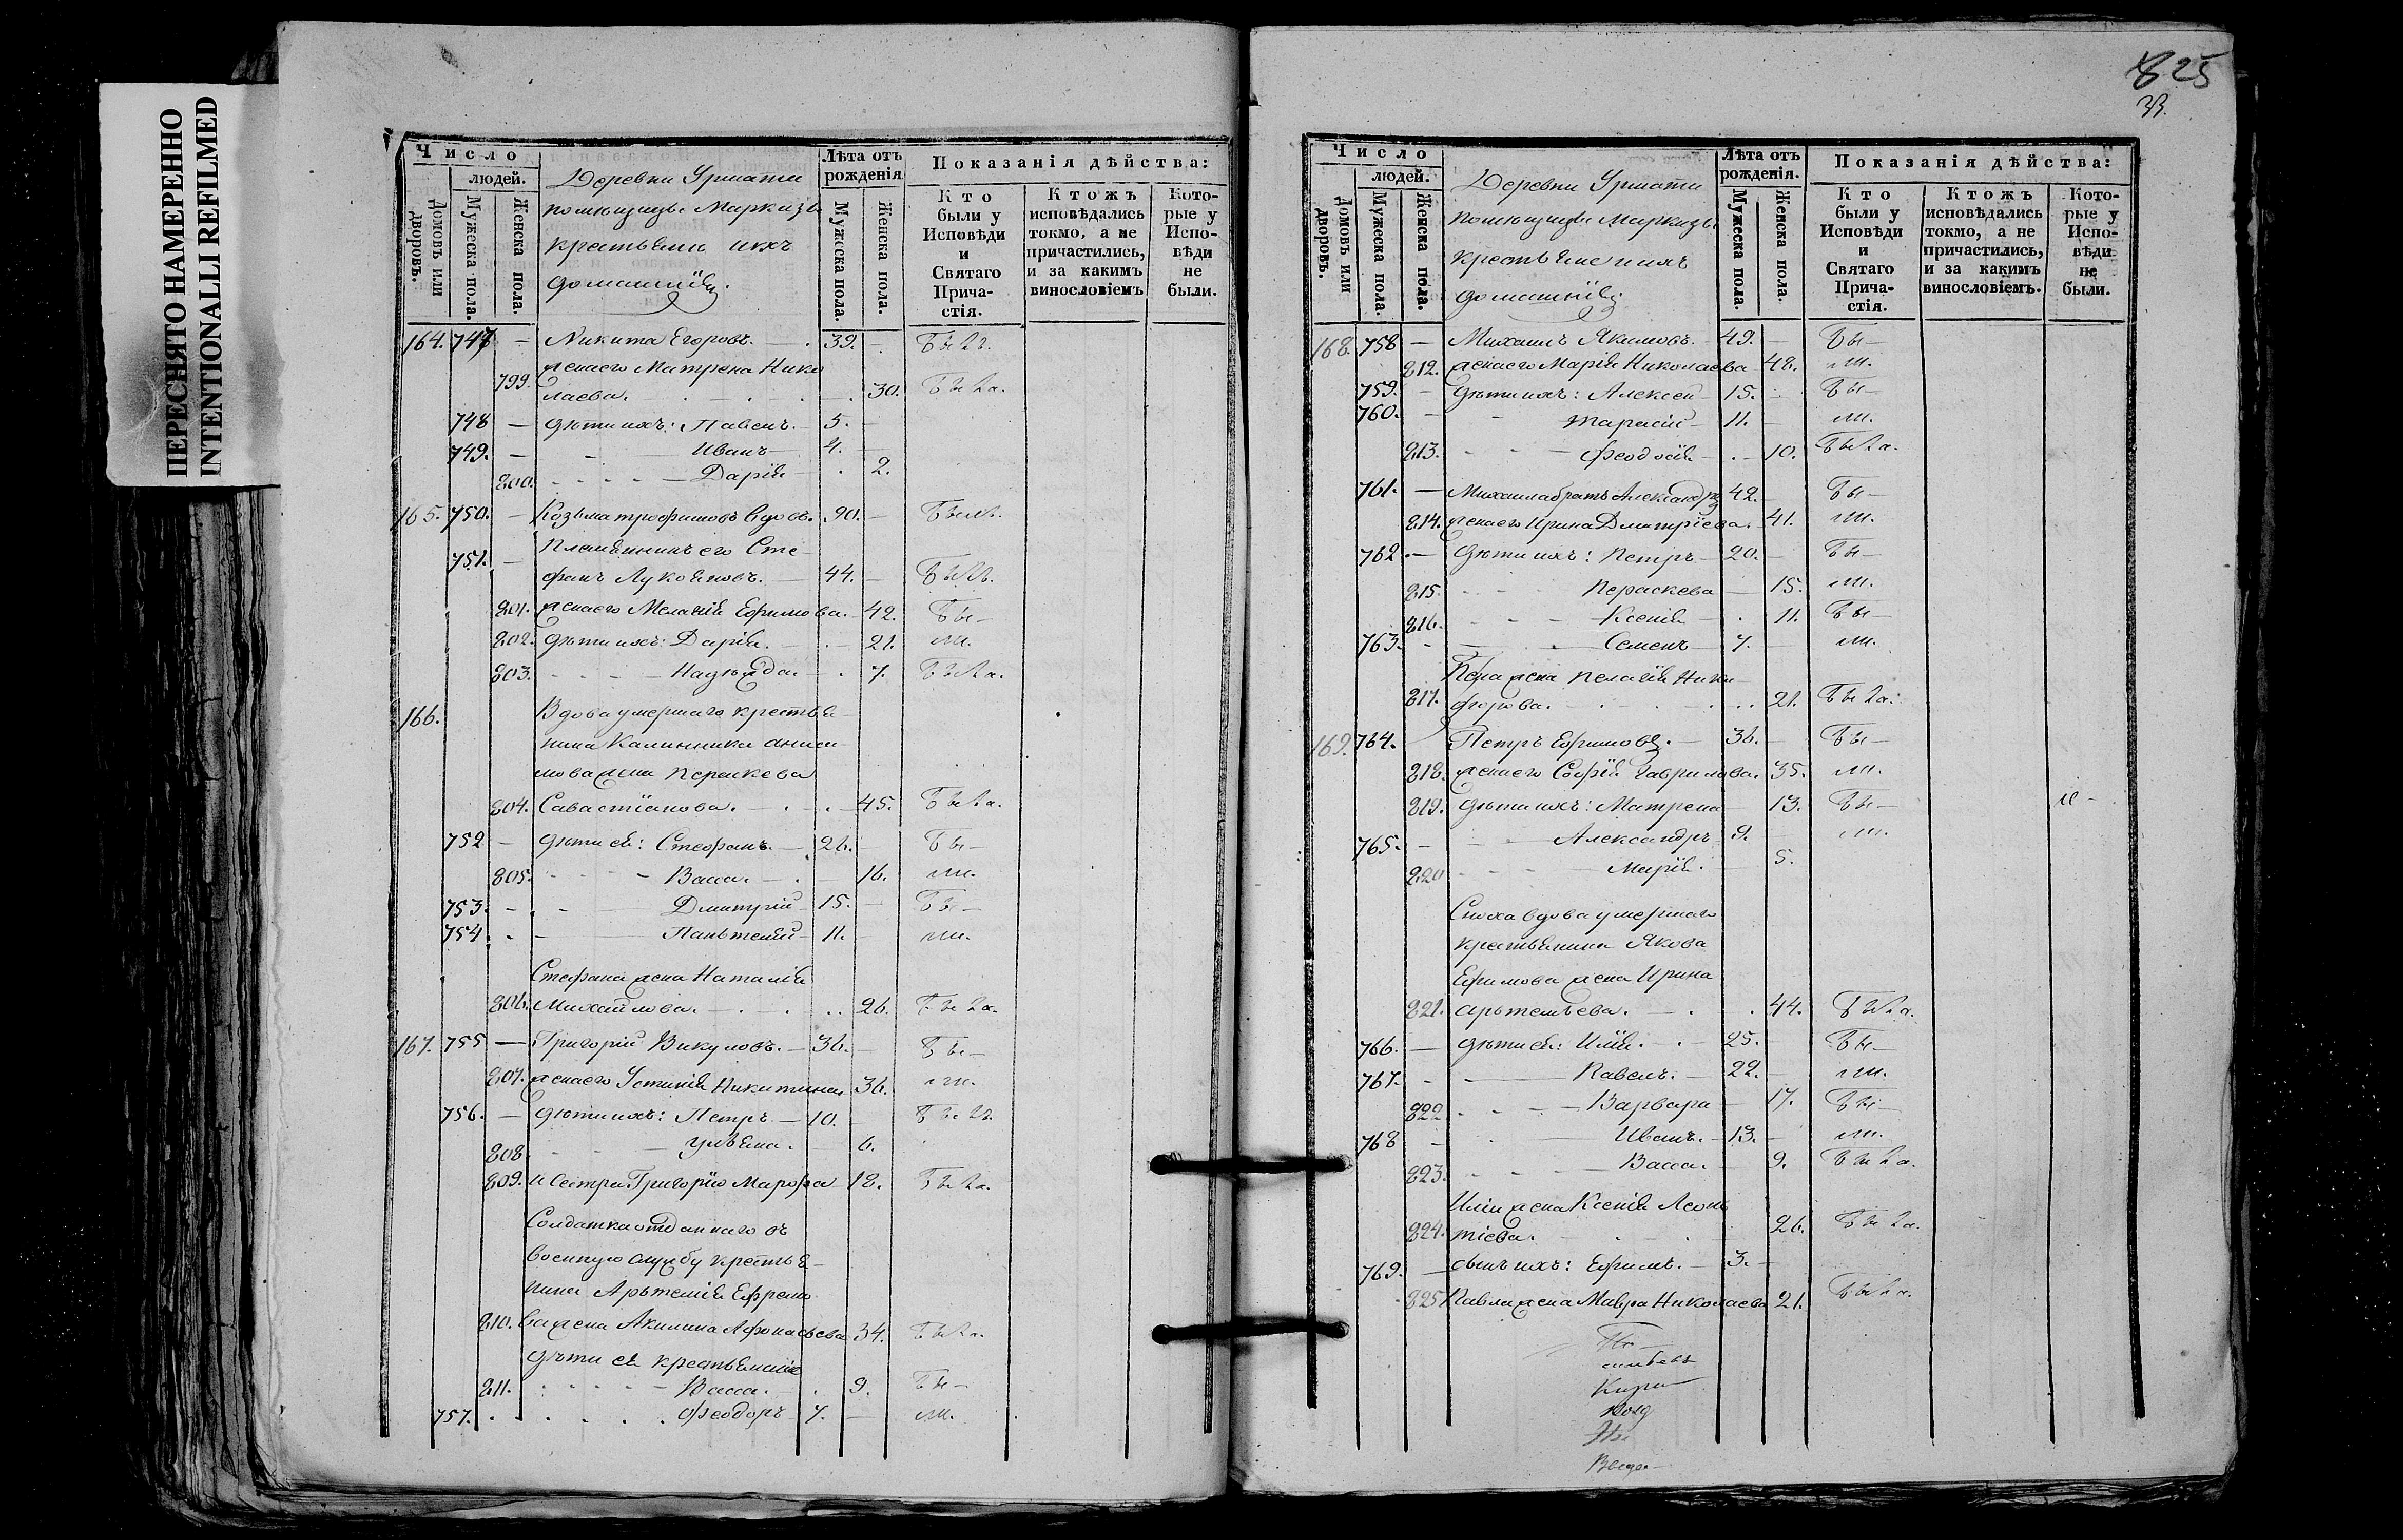 ПЕРЕСНЯТО НАМЕРЕННО
INTENTIONALLI REFILMED
Число
людей.
Домовъ или дворовъ.
Мужеска пола.
Женска пола.
Деревни Урмати
помѣщицы Маркизы
крестьяне ихъ
домашнія
Лѣта отъ рожденія
Мужеска пола.
Женска пола.
Показанія дѣйства:
Кто были у Исповѣди и Святаго Причастія.
Ктожъ исповѣдались токмо, а не причастились, и за какимъ винословіемъ
Которые у Исповѣди не были.
164. 747 — Никита Егоровъ. — 39. —
жена его Матрена Нико
799. лаева. 30. Была.
748 — дѣти ихъ: Павелъ. — 5. —
749. — Иванъ — 4. —
800. Дарія — 2.
165. 750. — Козьма Трофимовъ вдовъ. 90. —
751. — Племянникъ его Сте
фанъ Лукояновъ. — 44. —
801. жена его Меланія Ефимова. 42. Бы—
802. дѣти ихъ: Дарія. 21. ли.
803. Надѣжда. 7. Была.
166. Вдова умершаго крестья
нина Калинника Аниси
мова жена Пераскева
804. Савастіанова. 45. Была.
752 — дѣти ея: Стефанъ. — 26. — Бы—
805. Васса. 16. ли.
753. — Дмитрій 15. — Бы—
754. — Паньтелій 11. — ли.
Стефана жена Наталія
806. Михайлова. 26. Была.
167. 755 — Григорій Викуловъ. — 36. — Бы—
807. жена его Устинія Никитина 36. ли.
756. — дѣти ихъ: Петръ. — 10. —
808 Ульяна. 6.
809. и сестра Григорію Марфа 18. Была.
Солдатка отданнаго въ
военную службу крестья
нина Арьтемія Ефремо
810. ва жена Акилина Афонасьева 34. Была.
дѣти ея крестьянскіе
811. Васса. 9. Бы—
757. Феодоръ 7. — ли.
825
33.
Число
людей.
Домовъ или дворовъ.
Мужеска пола.
Женска пола.
Деревни Урмати
помѣщицы Маркизы
крестьяне ихъ
домашнія
Лѣта отъ рожденія.
Мужеска пола.
Женска пола.
Показанія дѣйства:
Кто были у Исповѣди и Святаго Причастія.
Ктожъ исповѣдались токмо, а не причастились, и за какимъ винословіемъ.
Которые у Исповѣди не были.
168. 758 — Михаилъ Якимовъ. 49. — Бы—
812. жена его Марія Николаева 48. ли.
759. — дѣти ихъ: Алексей 15. — Бы—
760. — Тарасій 11. — ли.
813. Феодосія 10. Была.
761. — Михаила братъ Александръ 42. — Бы—
814. жена его Ирина Дмитріева. 41. ли.
762. — дѣти ихъ: Петръ 20. — Бы—
815. Пераскева 15. ли.
816. Ксенія 11. Бы—
763. — Семенъ 7. — ли.
Петра жена Пелагія Ники
817. форова. 21. Была.
169. 764. Петръ Ефимовъ. — 36. — Бы—
818. жена его Софія Гаврилова. 35. ли.
819. дѣти ихъ: Матрена 13. Бы—
765. — Александръ 9. — ли.
820 Марія. 5.
Сноха вдова умершаго
крестьянина Якова
Ефимова жена Ирина
821. Арьтемьева. 44. Была.
766. — дѣти ея: Илія. 25. Бы—
767. — Павелъ. — 22. — ли.
822 Варвара 17. Бы—
768 — Иванъ. — 13. — ли.
823. Васса. 9. Была.
Иліи жена Ксенія Леонь
824. тіева. 26. Была.
769. — сынъ ихъ: Ефимъ. — 3. —
825. Павла жена Мавра Николаева 21. Была.